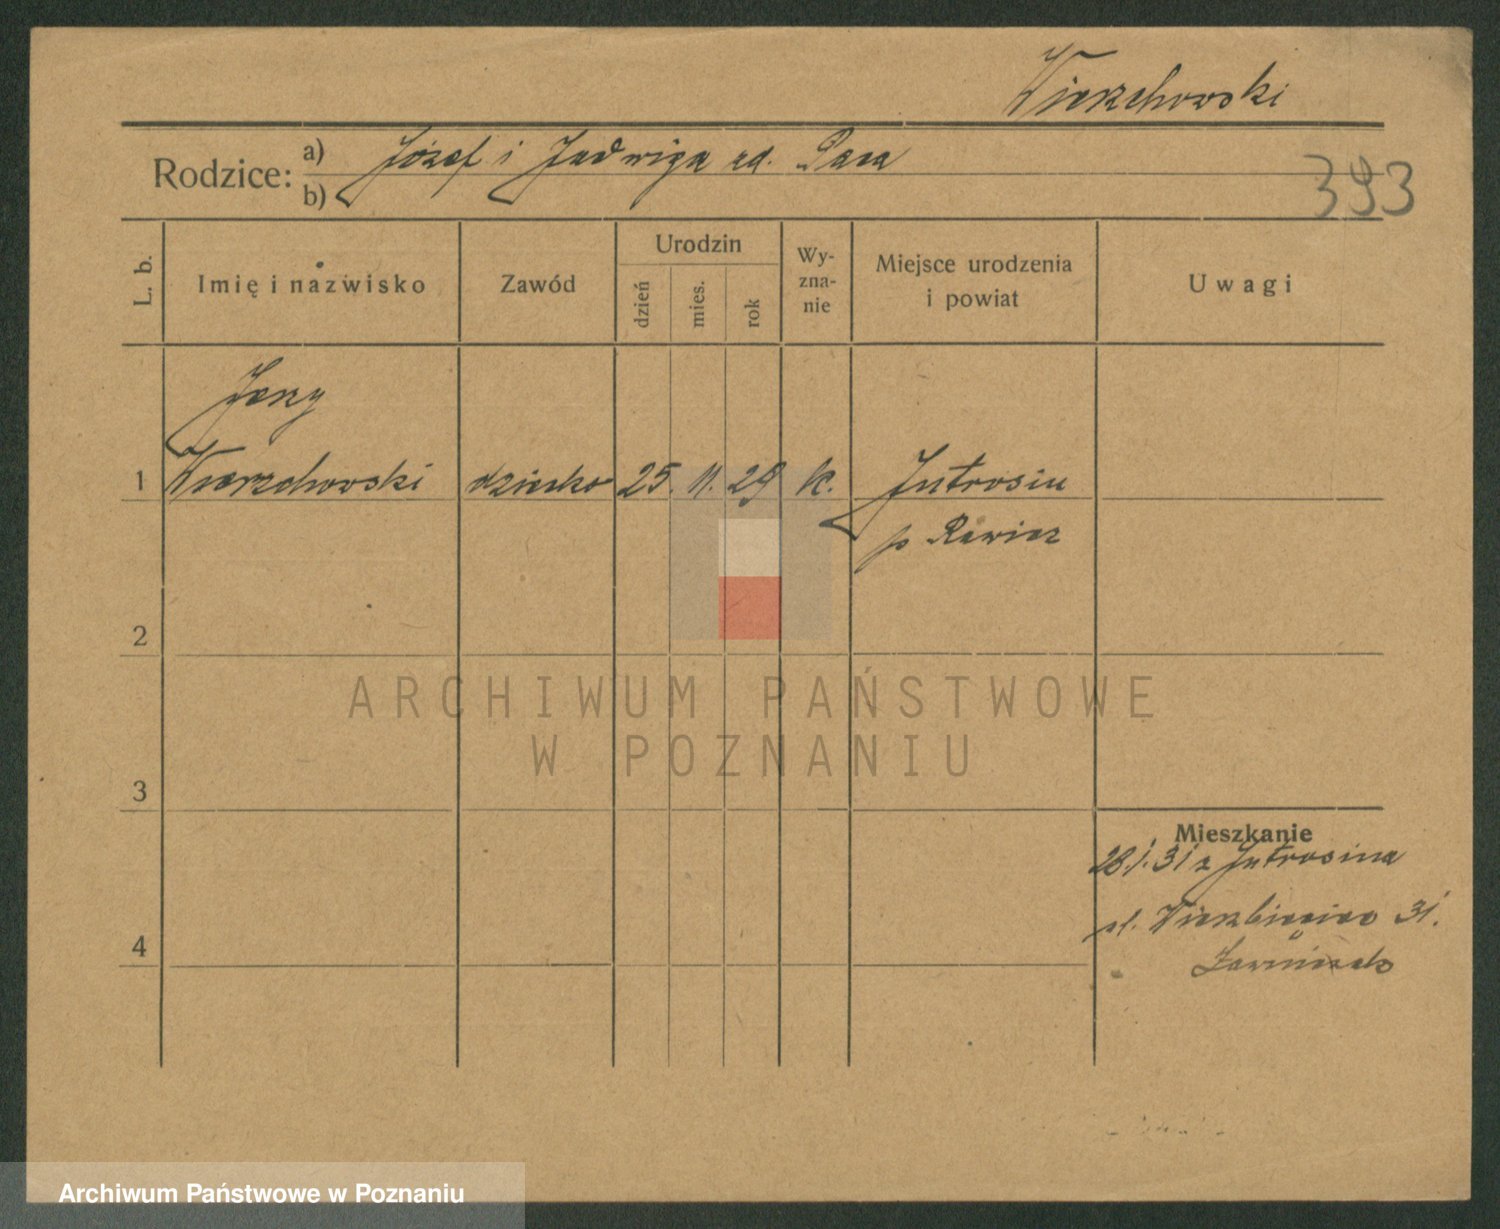 Wierzchowski
Rodzice: a) Józef i Jadwiga zd. Pasa
b)
393
L. b.
Imię i nazwisko
Zawód
Urodzin
dzień
mies.
rok
Wy-
zna-
nie
Miejsce urodzenia
i powiat
Uwagi
Jerzy
1 Wierzchowski dziecko 25. 11. 29 k. Jutrosin
p Rawicz
2
ARCHIWUM PAŃSTWOWE
W POZNANIU
3
Mieszkanie
28.1.31 z Jutrosina
ul. Wierzbięcice 31.
4
Archiwum Państwowe w Poznaniu